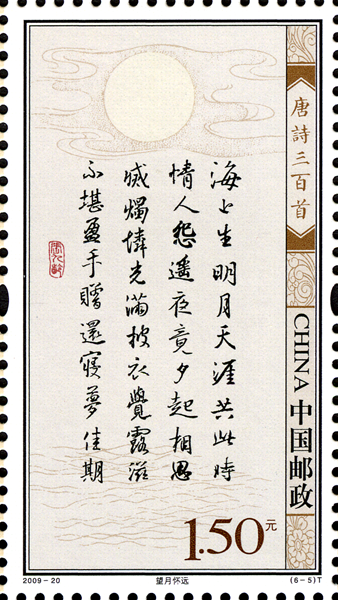 唐詩三百首
海上生明月天涯共此時
情人怨遥夜竟夕起相思
滅燭憐光滿披衣覺露滋
不堪盈手贈還寢夢佳期
CHINA 中国邮政
1.50元
2009-20
望月怀远
(6-5)T